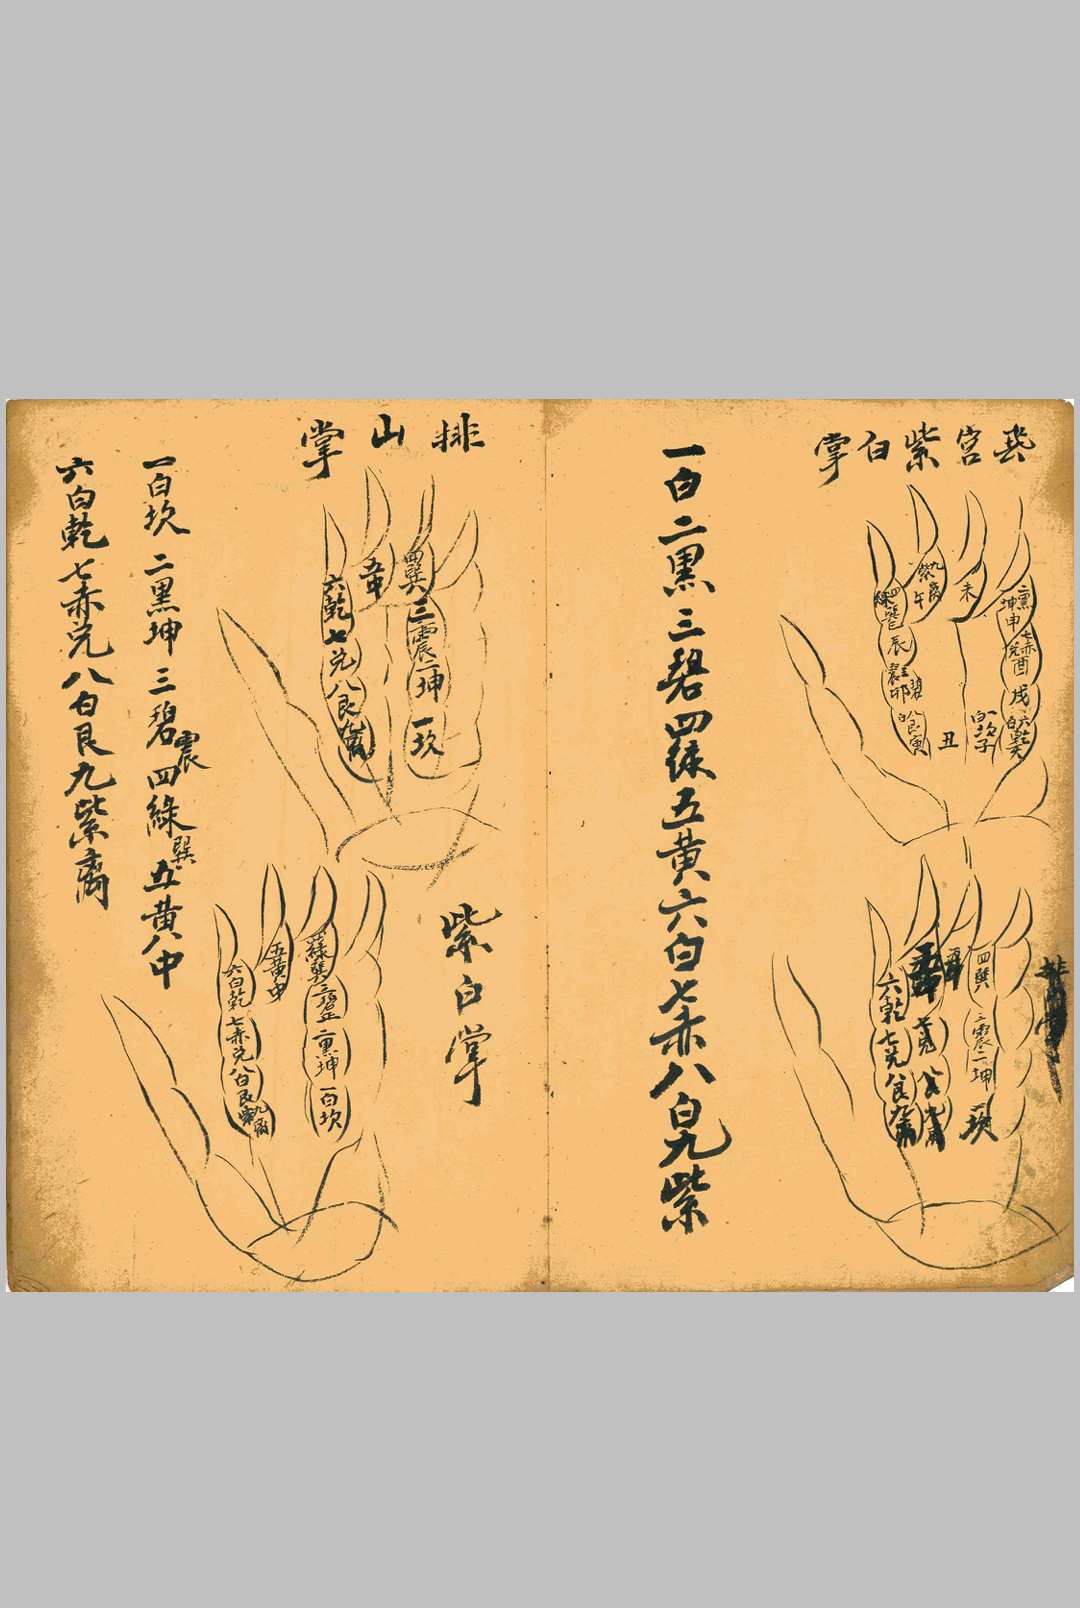 飛宮紫白掌
九紫離午
未
二黑坤申
四綠巽巳
辰
三碧震卯
八白艮寅
丑
一白坎子
七赤兌酉
戌
六白乾亥
四巽
三震二坤
一坎
六乾七兌八艮九離
七兌
八艮九離
一白二黑三碧四綠五黃六白七赤八白九紫
排山掌
四巽三震二坤一坎
五中
六乾七兌八艮九離
紫白掌
四綠巽三碧
二黑坤
一白坎
五黃中
六白乾
七赤兌
八白艮
九紫離
一白坎二黑坤三碧震四綠巽五黃八中
六白乾七赤兌八白艮九紫离